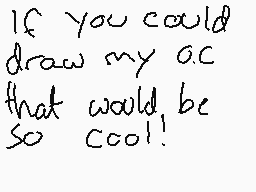 If you could
draw my O.C
that would, be
so cool!